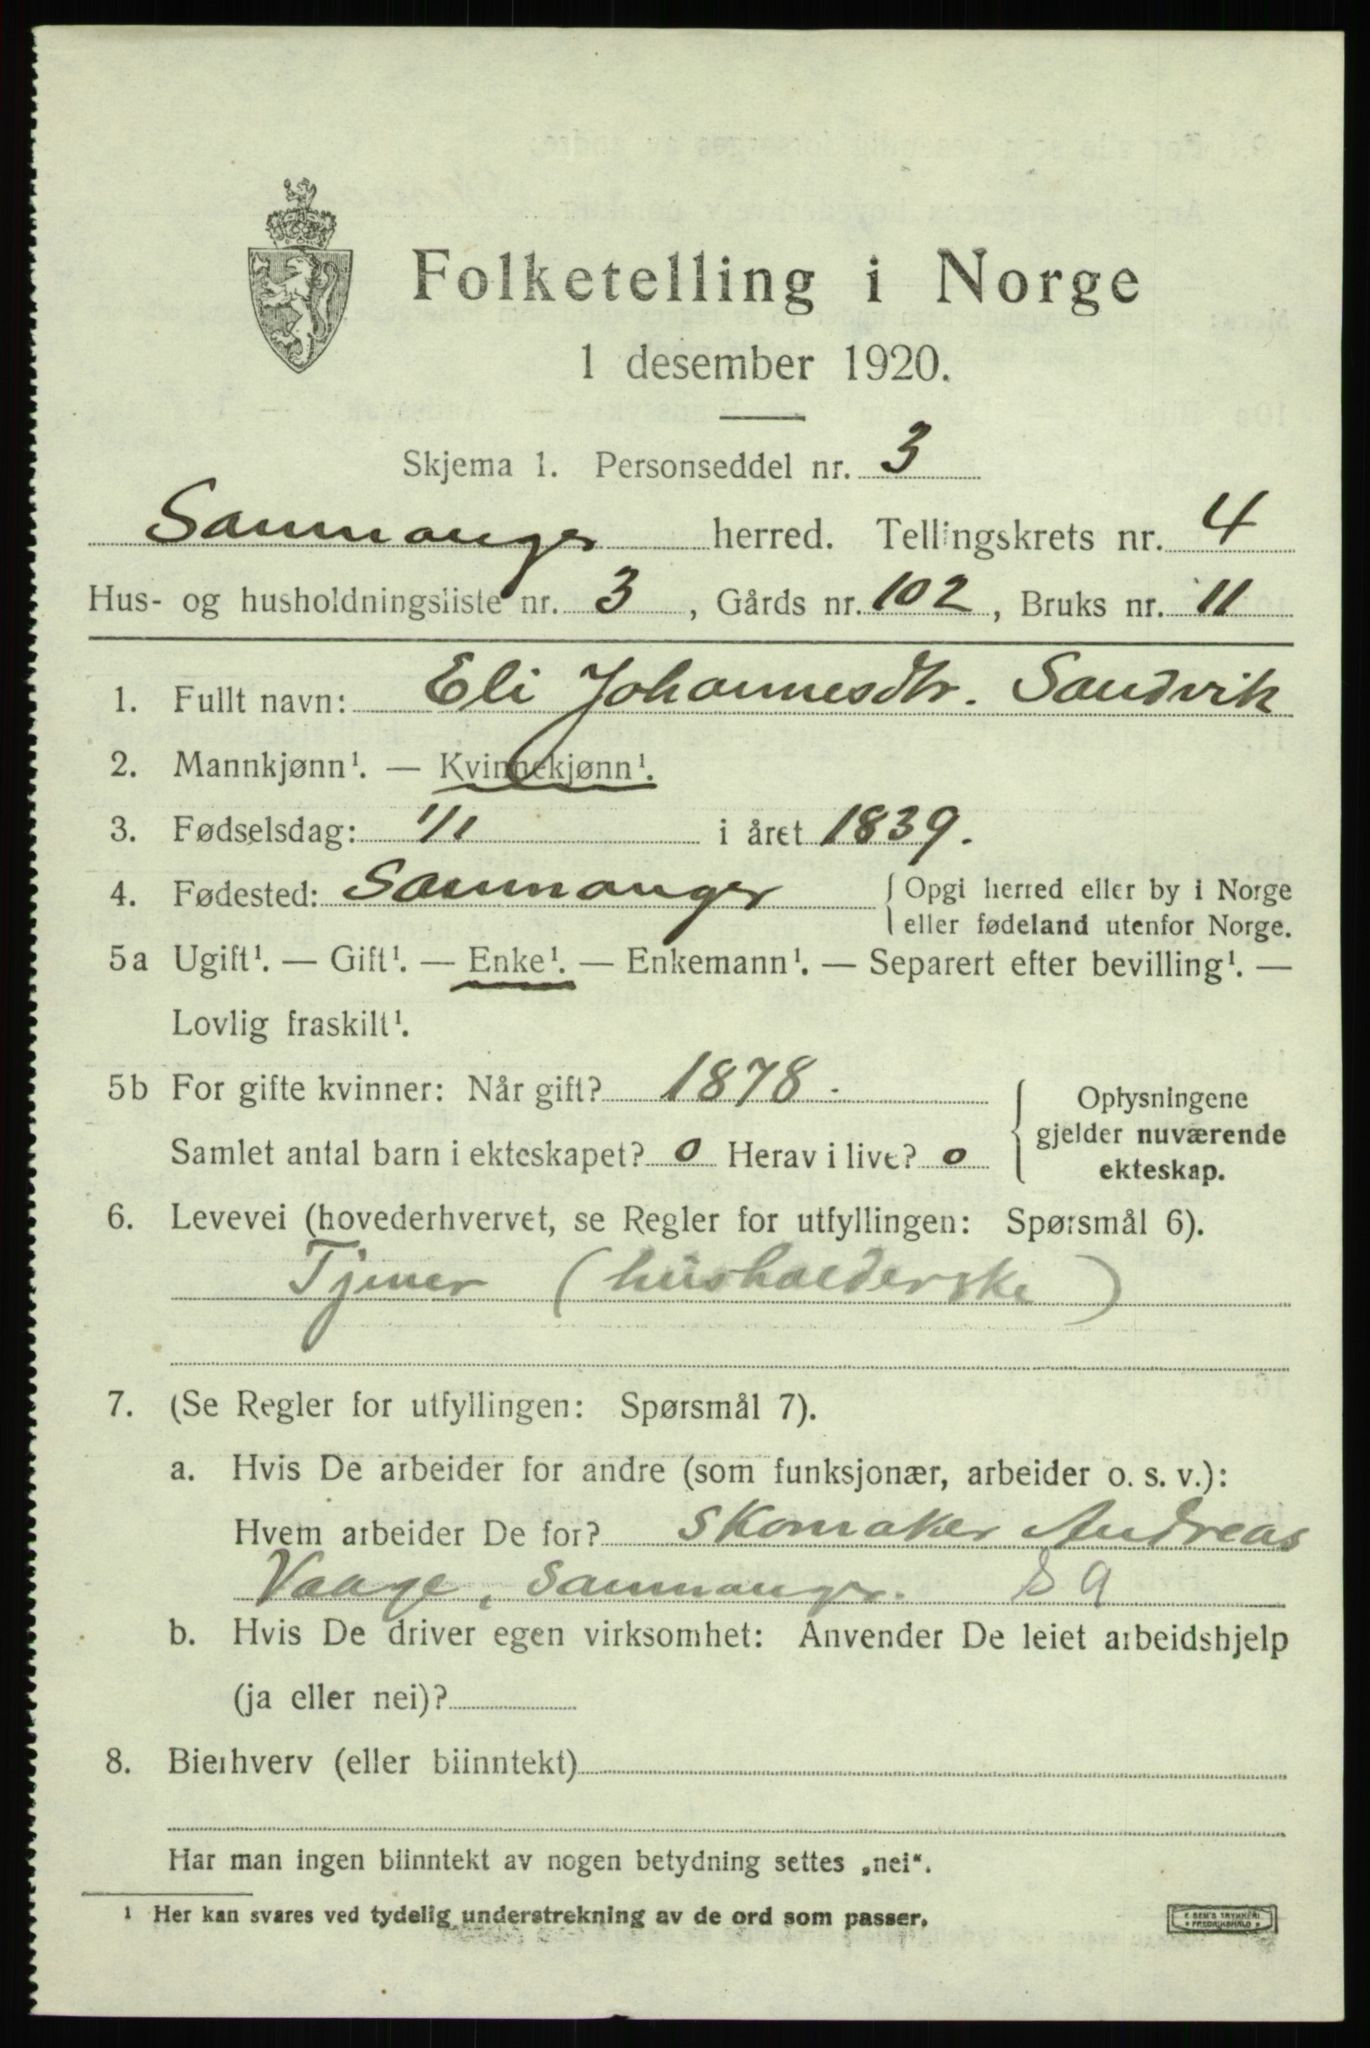 Folketelling i Norge
1 desember 1920.
Skjema 1. Personseddel nr. 3
Samnanger herred. Tellingskrets nr. 4
Hus- og husholdningsliste nr. 3, Gårds nr. 102, Bruks nr. 11
1. Fullt navn: Eli Johannesdtr. Sandvik
2. Mannkjønn¹. — Kvinnekjønn¹.
3. Fødselsdag: 1/1 i året 1839.
4. Fødested: Samnanger { Opgi herred eller by i Norge
eller fødeland utenfor Norge.
5a Ugift¹. — Gift¹. — Enke¹. — Enkemann¹. — Separert efter bevilling¹. —
Lovlig fraskilt¹.
5b For gifte kvinner: Når gift? 1878.
Samlet antal barn i ekteskapet? 0 Herav i live? 0
{ Oplysningene
gjelder nuværende
ekteskap.
6. Levevei (hovederhvervet, se Regler for utfyllingen: Spørsmål 6).
Tjener (husholderske)
7. (Se Regler for utfyllingen: Spørsmål 7).
a. Hvis De arbeider for andre (som funksjonær, arbeider o. s. v.):
Hvem arbeider De for? Skomaker Andreas
Vaage, Samnanger.
b. Hvis De driver egen virksomhet: Anvender De leiet arbeidshjelp
(ja eller nei)?
8. Bierhverv (eller biinntekt)
Har man ingen biinntekt av nogen betydning settes „nei“.
¹ Her kan svares ved tydelig understrekning av de ord som passer.
E SEM'S TRYKKERI
FREDRIKSHALD